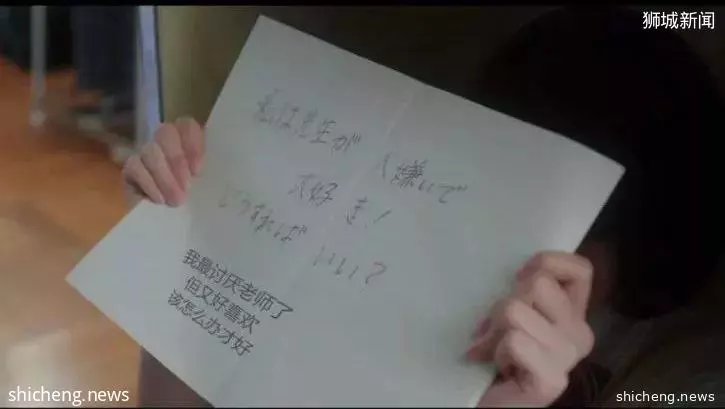 狮城新闻
私は先生が 大嫌いで
大好き!
どうすれば いい?
我最讨厌老师了
但又好喜欢
该怎么办才好
shicheng.news
shicheng.news